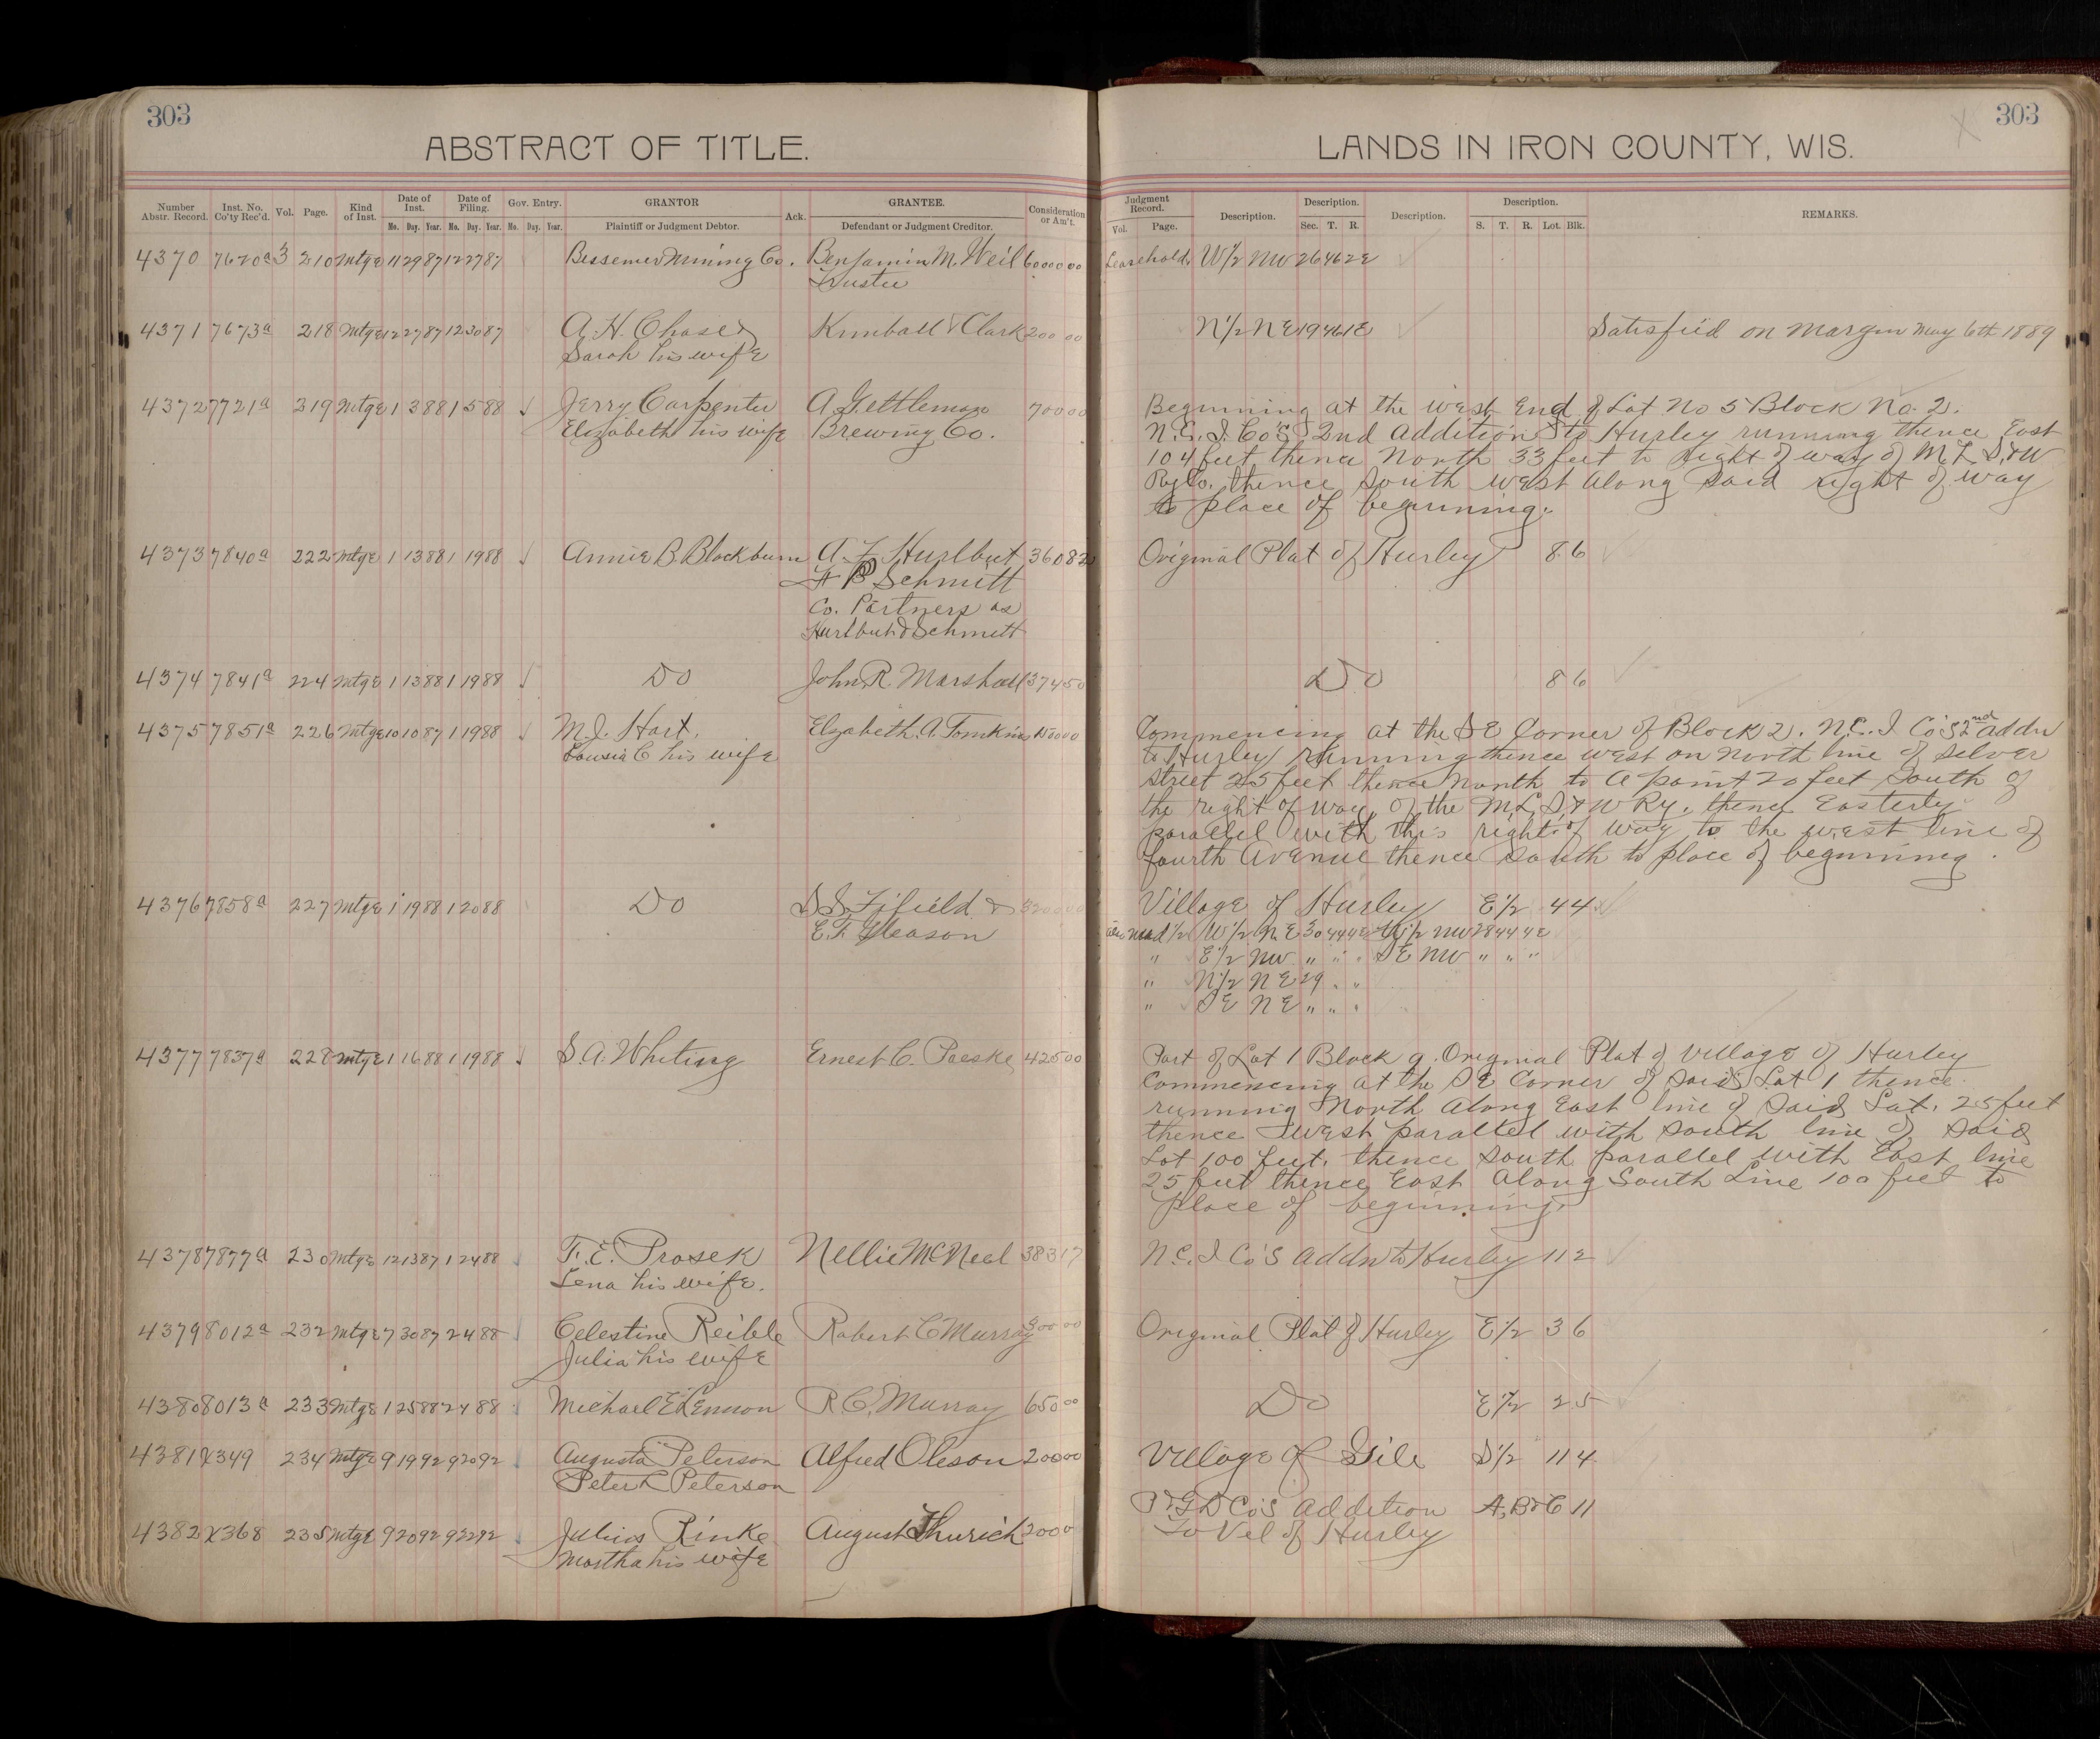 303
ABSTRACT OF TITLE.
Number Abstr. Record. Inst. No. Co'ty Rec'd. Vol. Page. Kind of Inst. Date of Inst. Date of Filing. Gov. Entry. GRANTOR Ack. GRANTEE. Consideration or Am't.
Mo. Day. Year. Mo. Day. Year. Mo. Day. Year. Plaintiff or Judgment Debtor. Defendant or Judgment Creditor.
4370 7620a 3 210 Mtge 11 29 87 12 27 87 Bessemer Mining Co. Benjamin M. Weil 6000 00
Trustee
4371 7673a 218 Mtge 12 27 87 12 30 87 A. H. Chase & Kimball & Clark 200 00
Sarah his wife
4372 7721a 319 Mtge 1 3 88 1 5 88 Jerry Carpenter A Gettleman 700 00
Elizabeth his wife Brewing Co.
4373 7840a 222 Mtge 1 13 88 1 19 88 Annie B. Blackburn A. F. Hurlbut 360 82
Schmitt
Co. Partners as
Hurlbut & Schmitt
4374 7841a 224 Mtge 1 13 88 1 19 88 Do John R. Marshall 374 50
4375 7851a 226 Mtge 10 10 87 1 19 88 M. J. Hart. Elizabeth. A. Tomkins
C his wife
4376 7858a 227 Mtge 1 19 88 1 20 88 Do S S Fifield & 3200 00
E. F. Gleason
4377 7837a 228 Mtge 1 16 88 1 19 88 S. A. Whiting Ernest C. Paeske 425 00
4378 7877a 230 Mtge 12 13 87 1 24 88 F. E. Prosek Nellie McNeel 383 17
Lena his wife.
4379 8012a 232 Mtge 7 30 87 2 4 88 Celestine Reible Robert C Murray 300 00
Julia his wife
4380 8013a 233 Mtge 1 25 88 2 4 88 Michael E Lennon R C. Murray 650 00
4381 X349 234 Mtge 9 19 92 9 20 92 Augusta Peterson Alfred Oleson 200 00
Peter L Peterson
4382 X368 235 Mtge 9 20 92 9 22 92 Julius Rinke August Thurich 200 0
Martha his wife
303
LANDS IN IRON COUNTY, WIS.
Judgment Record. Description. Description. Description. Description. REMARKS.
Vol. Page. Sec. T. R. S. T. R. Lot. Blk.
Leasehold. W 1/2 NW 26 46 2E
N 1/2 N E 19 46 1E Satisfied on Margin May 6th 1889
Beginning at the west End of Lot No 5 Block No. 2.
N.C. I. Co's 2nd Addition to Hurley running thence East
104 feet thence North 33 feet to Right of way of M. L. S. & W
Ry Co. thence South west along said right of way
to place of beginning.
Original Plat of Hurley 8 6
Do 8 6
Commencing at the S E Corner of Block 2. N.C. I Co's 2nd addn
to Hurley running thence west on North line of Silver
street 25 feet thence North to a point 20 feet South of
the right of way of the M. L. S. & W Ry. thence Easterly
parallel with this right of way to the west line of
fourth Avenue thence South to place of beginning.
Village of Hurley E 1/2 4 4
also und 1/2 W 1/2 N E 30 44 4E W 1/2 NW 28 44 4E
" E 1/2 NW " " " S E NW " " "
" N 1/2 N E 29 " "
" S E N E " " "
Part of Lot 1 Block 9. Original Plat of Village of Hurley
Commencing at the S E Corner of said Lot 1 thence
running North along East line of said Lot. 25 feet
thence west parallel with South line of said
Lot 100 feet. thence South parallel with East line
25 feet thence East Along South Line 100 feet to
place of beginning.
N.C. I Co's addn to Hurley 11 2
Original Plat of Hurley E 1/2 3 6
Do E 1/2 2 5
Village of Gile S 1/2 11 4
Co's Addition A, B & C 11
To Vil of Hurley